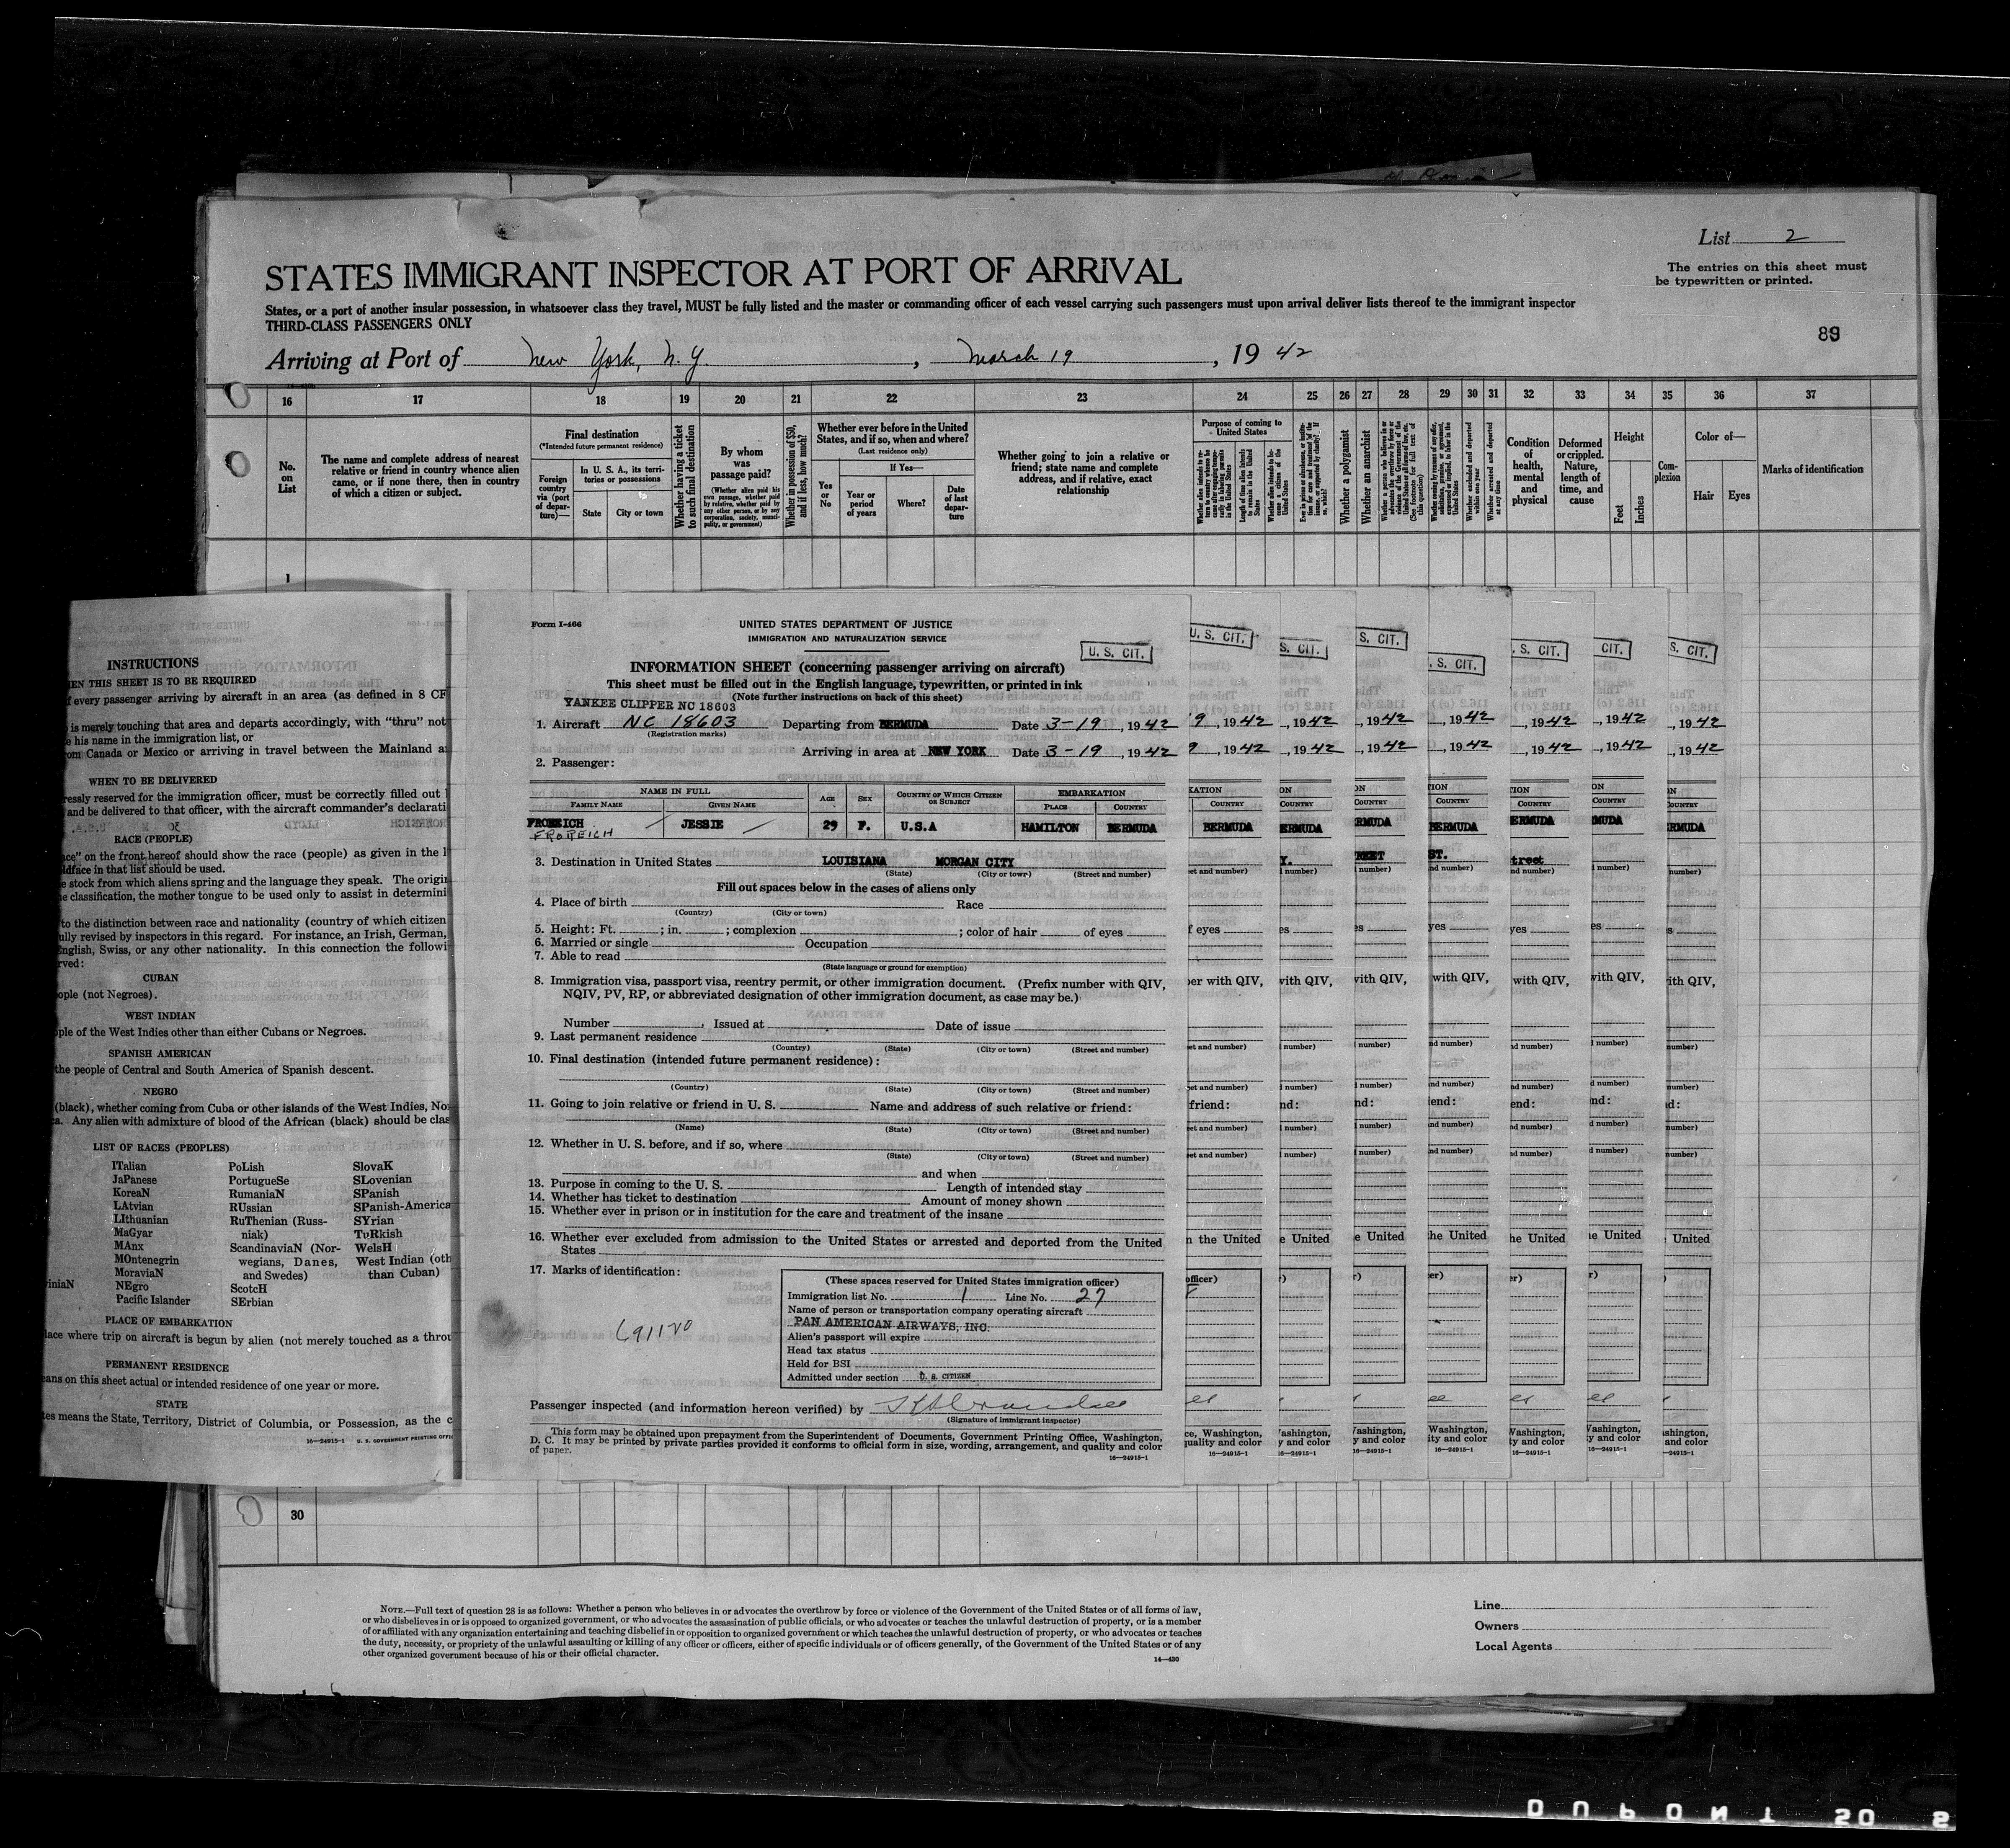 List 2
The entries on this sheet must
be typewritten or printed.
STATES IMMIGRANT INSPECTOR AT PORT OF ARRIVAL
States, or a port of another insular possession, in whatsoever class they travel, MUST be fully listed and the master or commanding officer of each vessel carrying such passengers must upon arrival deliver lists thereof to the immigrant inspector
THIRD-CLASS PASSENGERS ONLY
89
Arriving at Port of New York, N.Y., March 19, 19 42
16 17 18 19 20 21 22 23 24 25 26 27 28 29 30 31 32 33 34 35 36 37
No.
on
List
The name and complete address of nearest
relative or friend in country whence alien
came, or if none there, then in country
of which a citizen or subject.
Final destination
(*Intended future permanent residence)
Foreign
country
via (port
of depar-
ture)—
In U. S. A., its terri-
tories or possessions
State City or town
Whether having a ticket
to such final destination
By whom
was
passage paid?
(Whether alien paid his
own passage, whether paid
by relative, whether paid by
any other person, or by any
corporation, society, munici-
pality, or government)
Whether in possession of $50,
and if less, how much?
Whether ever before in the United
States, and if so, when and where?
(Last residence only)
Yes
or
No
If Yes—
Year or
period
of years
Where?
Date
of last
depar-
ture
Whether going to join a relative or
friend; state name and complete
address, and if relative, exact
relationship
Purpose of coming to
United States
Length of time alien intends
to remain in the United
States
Whether a polygamist
Whether an anarchist
Whether excluded and deported
within one year
Whether arrested and deported
at any time
Condition
of
health,
mental
and
physical
Deformed
or crippled.
Nature,
length of
time, and
cause
Height
Feet Inches
Com-
plexion
Color of—
Hair Eyes
Marks of identification
1
INSTRUCTIONS
EN THIS SHEET IS TO BE REQUIRED
f every passenger arriving by aircraft in an area (as defined in 8 CF
is merely touching that area and departs accordingly, with "thru" not
e his name in the immigration list, or
om Canada or Mexico or arriving in travel between the Mainland a
WHEN TO BE DELIVERED
ressly reserved for the immigration officer, must be correctly filled out
and be delivered to that officer, with the aircraft commander's declarati
RACE (PEOPLE)
ce" on the front hereof should show the race (people) as given in the l
ldface in that list should be used.
e stock from which aliens spring and the language they speak. The origin
e classification, the mother tongue to be used only to assist in determini
to the distinction between race and nationality (country of which citizen
ully revised by inspectors in this regard. For instance, an Irish, German,
English, Swiss, or any other nationality. In this connection the followi
rved:
CUBAN
ople (not Negroes).
WEST INDIAN
ple of the West Indies other than either Cubans or Negroes.
SPANISH AMERICAN
the people of Central and South America of Spanish descent.
NEGRO
(black), whether coming from Cuba or other islands of the West Indies, No
a. Any alien with admixture of blood of the African (black) should be clas
LIST OF RACES (PEOPLES)
ITalian PoLish SlovaK
JaPanese PortugueSe SLovenian
KoreaN RumaniaN SPanish
LAtvian RUssian SPanish-America
LIthuanian RuThenian (Russ- SYrian
MaGyar niak) TuRkish
MAnx ScandinaviaN (Nor- WelsH
MOntenegrin wegians, Danes, West Indian (oth
MoraviaN and Swedes) than Cuban)
viniaN NEgro ScotcH
Pacific Islander SErbian
PLACE OF EMBARKATION
lace where trip on aircraft is begun by alien (not merely touched as a throu
PERMANENT RESIDENCE
eans on this sheet actual or intended residence of one year or more.
STATE
tes means the State, Territory, District of Columbia, or Possession, as the c
16—24915-1 U. S. GOVERNMENT PRINTING OFFI
Form I-466
UNITED STATES DEPARTMENT OF JUSTICE
IMMIGRATION AND NATURALIZATION SERVICE
U. S. CIT.
INFORMATION SHEET (concerning passenger arriving on aircraft)
This sheet must be filled out in the English language, typewritten, or printed in ink
(Note further instructions on back of this sheet)
YANKEE CLIPPER NC 18603
1. Aircraft NC 18603 Departing from BERMUDA Date 3-19, 1942
(Registration marks)
Arriving in area at NEW YORK Date 3-19, 1942
2. Passenger:
NAME IN FULL AGE SEX COUNTRY OF WHICH CITIZEN OR SUBJECT EMBARKATION
FAMILY NAME GIVEN NAME PLACE COUNTRY
FROREICH JESSIE 29 F. U.S.A HAMILTON BERMUDA
FROREICH
3. Destination in United States LOUISIANA MORGAN CITY
(State) (City or town) (Street and number)
Fill out spaces below in the cases of aliens only
4. Place of birth Race
(Country) (City or town)
5. Height: Ft. ; in. ; complexion ; color of hair of eyes
6. Married or single Occupation
7. Able to read
(State language or ground for exemption)
8. Immigration visa, passport visa, reentry permit, or other immigration document. (Prefix number with QIV,
NQIV, PV, RP, or abbreviated designation of other immigration document, as case may be.)
Number , Issued at Date of issue
9. Last permanent residence
(Country) (State) (City or town) (Street and number)
10. Final destination (intended future permanent residence):
(Country) (State) (City or town) (Street and number)
11. Going to join relative or friend in U. S. Name and address of such relative or friend:
(Name) (State) (City or town) (Street and number)
12. Whether in U. S. before, and if so, where
(State) (City or town) (Street and number)
and when
13. Purpose in coming to the U. S. Length of intended stay
14. Whether has ticket to destination Amount of money shown
15. Whether ever in prison or in institution for the care and treatment of the insane
16. Whether ever excluded from admission to the United States or arrested and deported from the United
States
17. Marks of identification:
(These spaces reserved for United States immigration officer)
Immigration list No. 1 Line No. 27
Name of person or transportation company operating aircraft
PAN AMERICAN AIRWAYS, INC.
Alien's passport will expire
Head tax status
Held for BSI
Admitted under section U. S. CITIZEN
Passenger inspected (and information hereon verified) by
(Signature of immigrant inspector)
This form may be obtained upon prepayment from the Superintendent of Documents, Government Printing Office, Washington,
D. C. It may be printed by private parties provided it conforms to official form in size, wording, arrangement, and quality and color
of paper.
16—24915-1
30
NOTE.—Full text of question 28 is as follows: Whether a person who believes in or advocates the overthrow by force or violence of the Government of the United States or of all forms of law,
or who disbelieves in or is opposed to organized government, or who advocates the assassination of public officials, or who advocates or teaches the unlawful destruction of property, or is a member
of or affiliated with any organization entertaining and teaching disbelief in or opposition to organized government or which teaches the unlawful destruction of property, or who advocates or teaches
the duty, necessity, or propriety of the unlawful assaulting or killing of any officer or officers, either of specific individuals or of officers generally, of the Government of the United States or of any
other organized government because of his or their official character.
14—430
Line
Owners
Local Agents
DUPONT 20 S